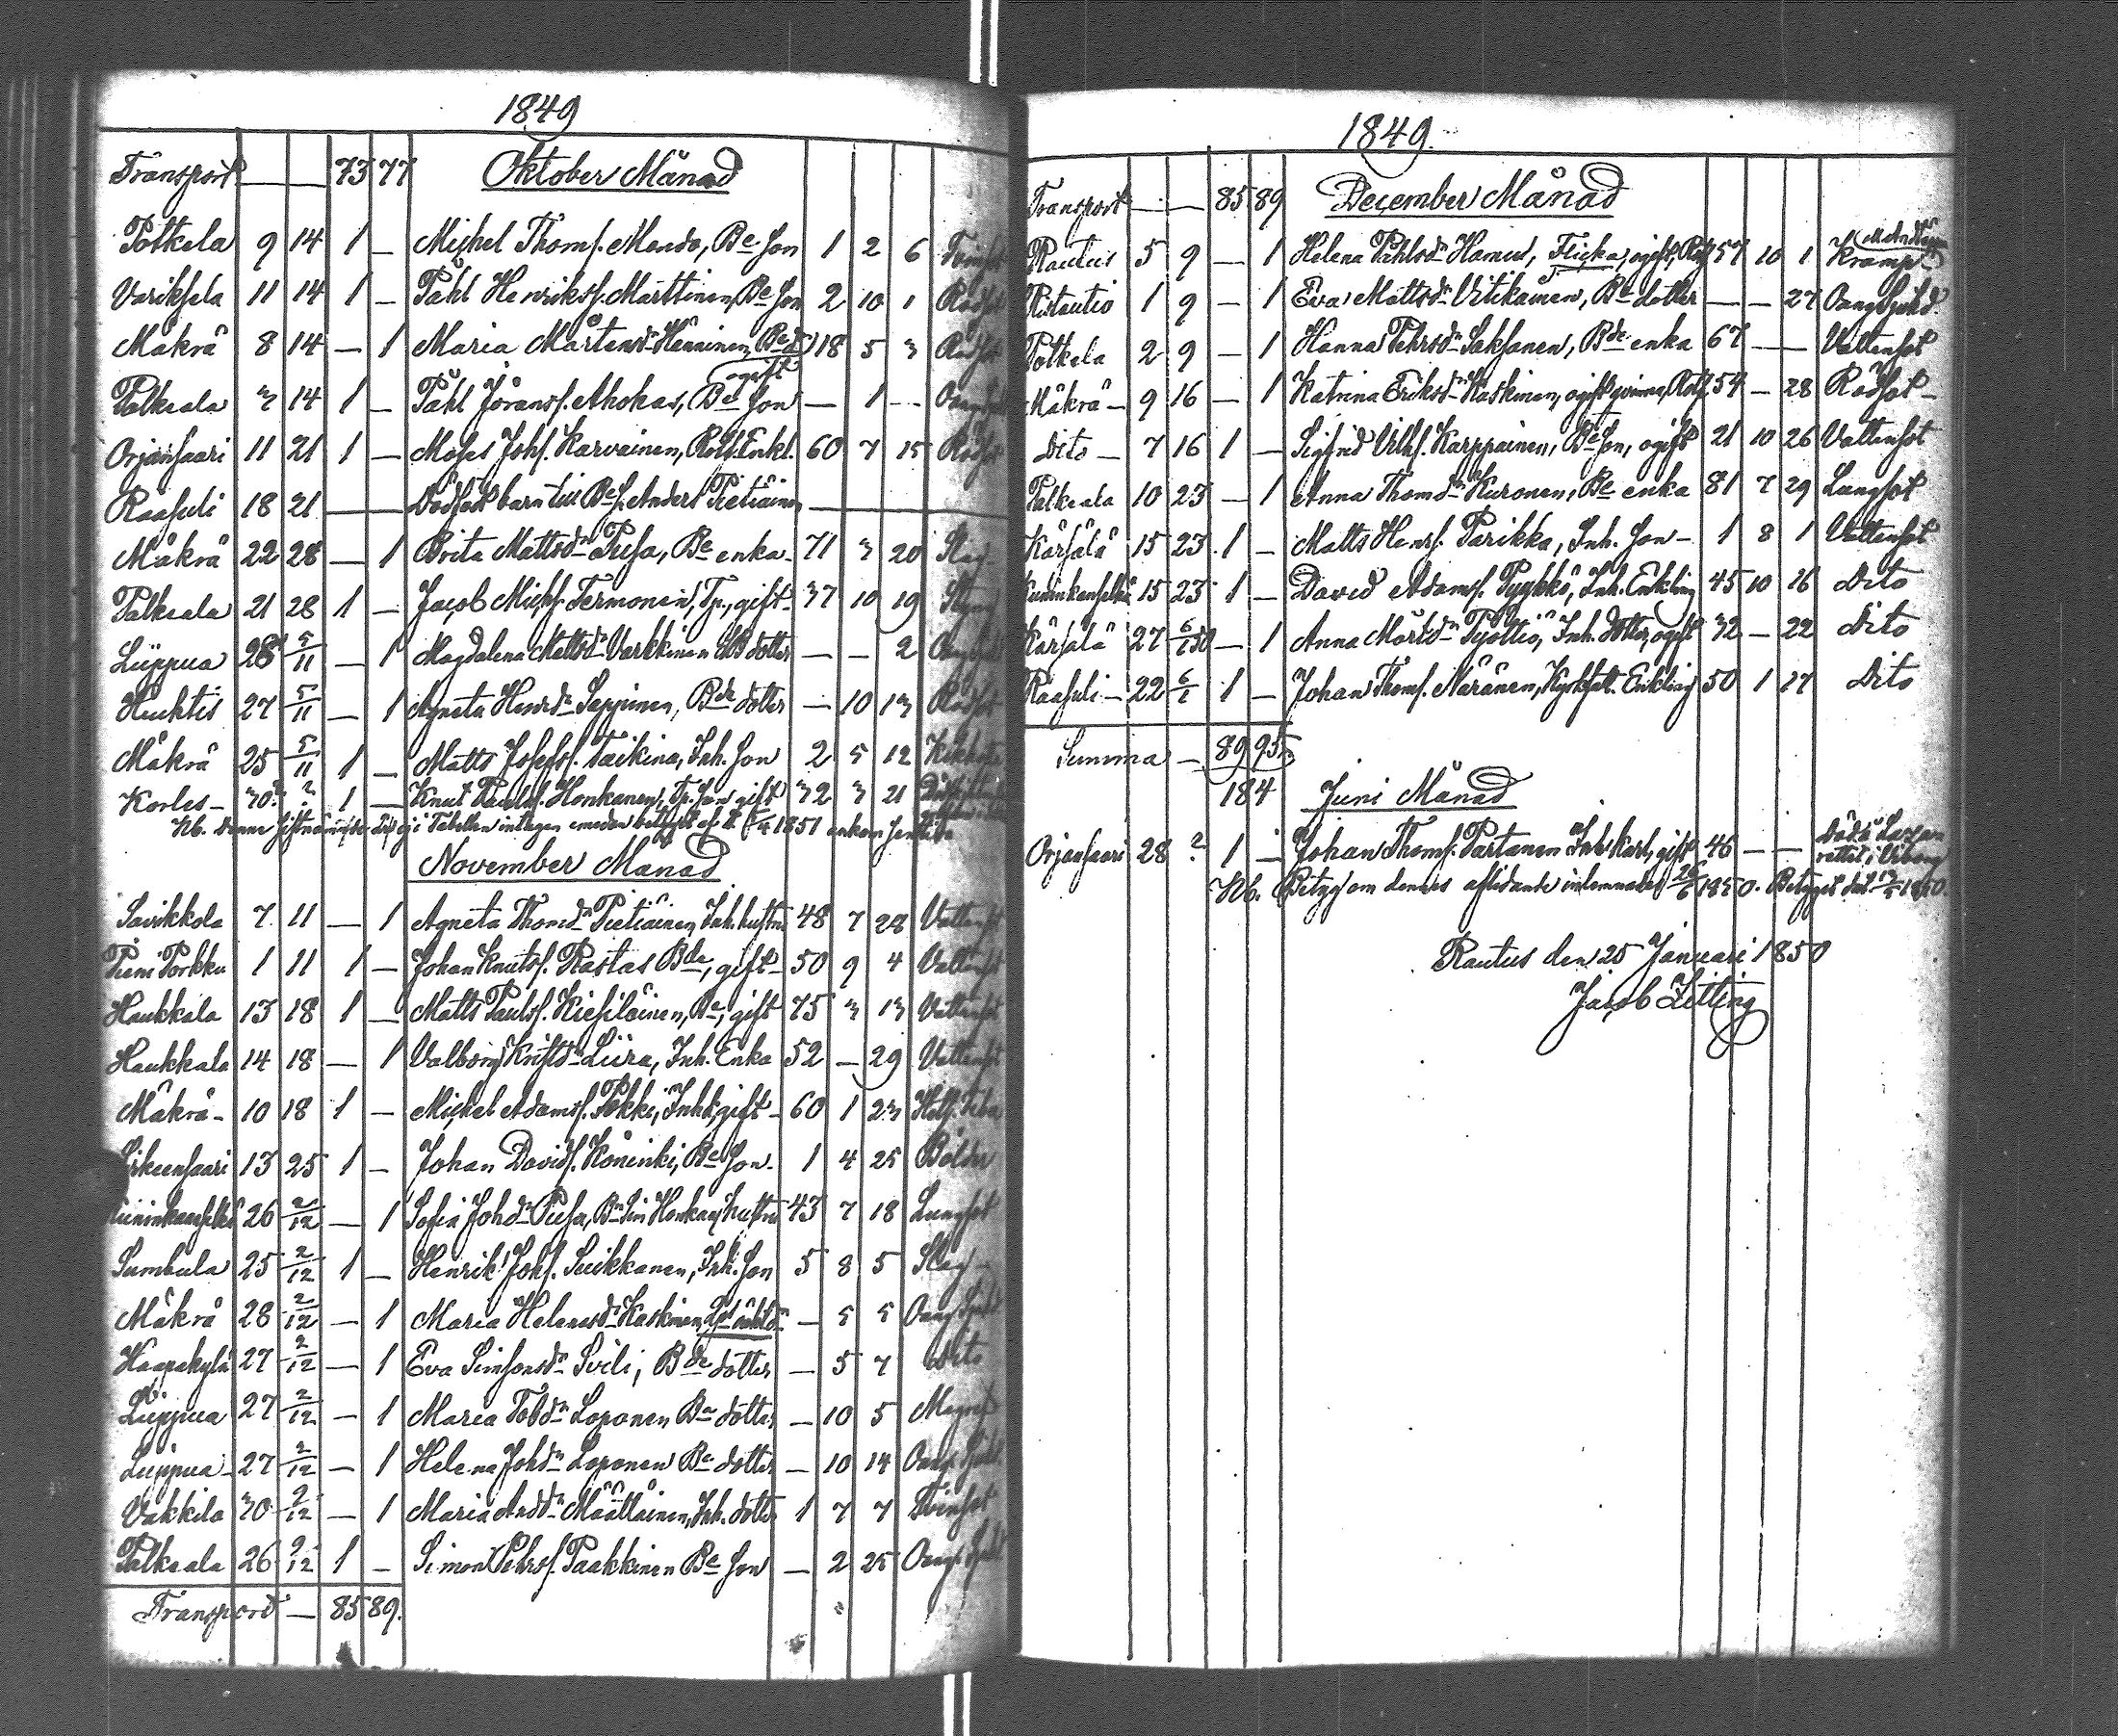 1849
Transport — — 73 77 Oktober Månad
Potkela 9 14 1 — Michel Thoms. Mando, Be Son 1 2 6 Tvinsot
Variksela 11 14 1 — Påhl Henriks. Marttinen, Be Son 2 10 1 Rödsot
Mäkrä 8 14 — 1 Maria Mårtensdr Heininen, Be dr ogift 18 5 3 Rödsot
Palkeala 3 14 1 — Påhl Jörans. Ahokas, Be Son — 1 —
Orjansaari 11 21 1 — Moses Johs. Karvainen, Rotf. Enkl. 60 7 15 Rödsot
Raasuli 18 21 — Dödfödt barn till Be S. Anders Pietiäinen —
Mäkrä 22 28 — 1 Brita Mattsdr Pusa, Be enka 71 3 20 Slag
Palkeala 21 28 1 — Jacob Michs. Termonen, Tp., gift 37 10 19
Lüppua 28 5/11 — 1 Magdalena Mattsdr Varkkinen dotter — — 2
Huuktis 27 5/11 — 1 Agneta Henrdr Seppinen, Bde dotter — 10 13 Rödsot
Mäkrä 25 5/11 1 — Matts Josefs. Taikina, Inh. Son 2 5 12 Kikhosta
Korles — 30 ? ? 1 — Knut Pauls. Honkanen, Tp. Son gift 32 3 21
Nb. Denne ej i Tabellen intagen emedan 1851
November Månad
Savikkola 7 11 — 1 Agneta Thomdr Pietiäinen, Inh. hustru 48 7 28 Vattensot
Pieni Porkku 1 11 1 — Johan Knuts. Rastas Bde, gift 50 9 4 Vattensot
Haukkala 13 18 1 — Matts Pauls. Kiesiläinen, Be, gift 75 3 13 Vattensot
Haukkala 14 18 — 1 Valborg Kristdr Liira, Inh. Enka 52 — 29 Vattensot
Mäkrä 10 18 1 — Michel Adams. Pökki, Inh., gift 60 1 23
Sirkeensaari 13 25 1 — Johan Davids. Köninki, Be Son 1 4 25 Bölder
26 2/12 — 1 Sofia Johdr Piesa, Honkas hustru 43 7 18 Lungsot
Sumbula 25 2/12 1 — Henrik Johs. Suikkanen, Inh. Son 5 8 5 Slag
Mäkrä 28 2/12 — 1 Maria Helenasdr Kaskinen, — 5 5
Haapakylä 27 2/12 — 1 Eva Simonsdr Svili, Bde dotter — 5 7 Dito
Lüppua 27 2/12 — 1 Maria Tobdr Loponen Be dotter — 10 5
Lüppua 27 2/12 — 1 Helena Johdr Loponen Be dotter — 10 14
Vakkila 30 2/12 — 1 Maria Anddr Määttäinen, Inh. dotter 1 7 7 Tvinsot
Palkeala 26 2/12 1 — Simon Pehrs. Paakkinen Be Son — 2 25
Transport — 85 89.
1849.
Transport — — 85 89 December Månad
Rautus 5 9 — 1 Helena Påhlsdr Hamus, Flicka, ogift, 57 10 1 Kramp
Rautio 1 9 — 1 Eva Mattsdr Vitikainen, Be dotter — — 27 Oangifvd.
Potkela 2 9 — 1 Hanna Pehrsdr Saksanen, Bde enka 67 — — Vattensot
Mäkrä 9 16 — 1 Katrina Eriksdr Kaskinen, ogift qvinna, Rotf. 54 — 28 Rödsot
Dito 7 16 1 — Sigfrid Vilhs. Karppainen, Be Son, ogift 21 10 26 Vattensot
Palkeala 10 23 — 1 Anna Thomdr Kuronen, Be enka 81 7 29 Lungsot
Kärsälä 15 23 1 — Matts Henrs. Parikka, Inh. Son 1 8 1 Vattensot
15 23 1 — David Adams. Pyykkö, Inh. Enkling 45 10 16 Dito
Kärsälä 27 6/1 50 — 1 Anna Mårtdr Pyöttiö, Inh. dotter, ogift 32 — 22 Dito
Raasuli 22 6/1 1 — Johan Thoms. Näränen, Enkling 50 1 17 Dito
Summa — 89 95
184 Juni Månad
Orjansaari 28 ? 1 — Johan Thoms. Partanen Inh. Karl, gift 46 — — Död å Lazarettet i Viborg
Nb. Betyg om dennes aflidande inlemnades 26/6 1850. Betyget dat. 1850.
Rautus den 25 Januari 1850
Jacob Zitting